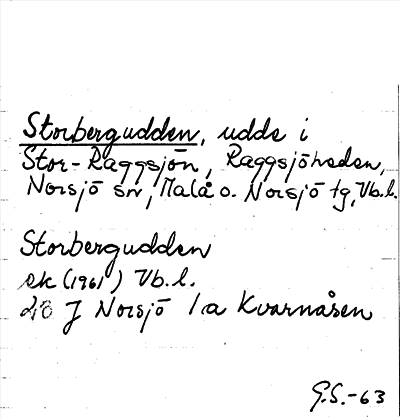 Storbergudden, udde i
Stor-Raggsjön, Raggsjöheden,
Norsjö sn, Malå o. Norsjö tg, Vb.l.
Storbergudden
ek (1961) Vb.l.
23 J Norsjö 1a Kvarnåsen
G.S.-63